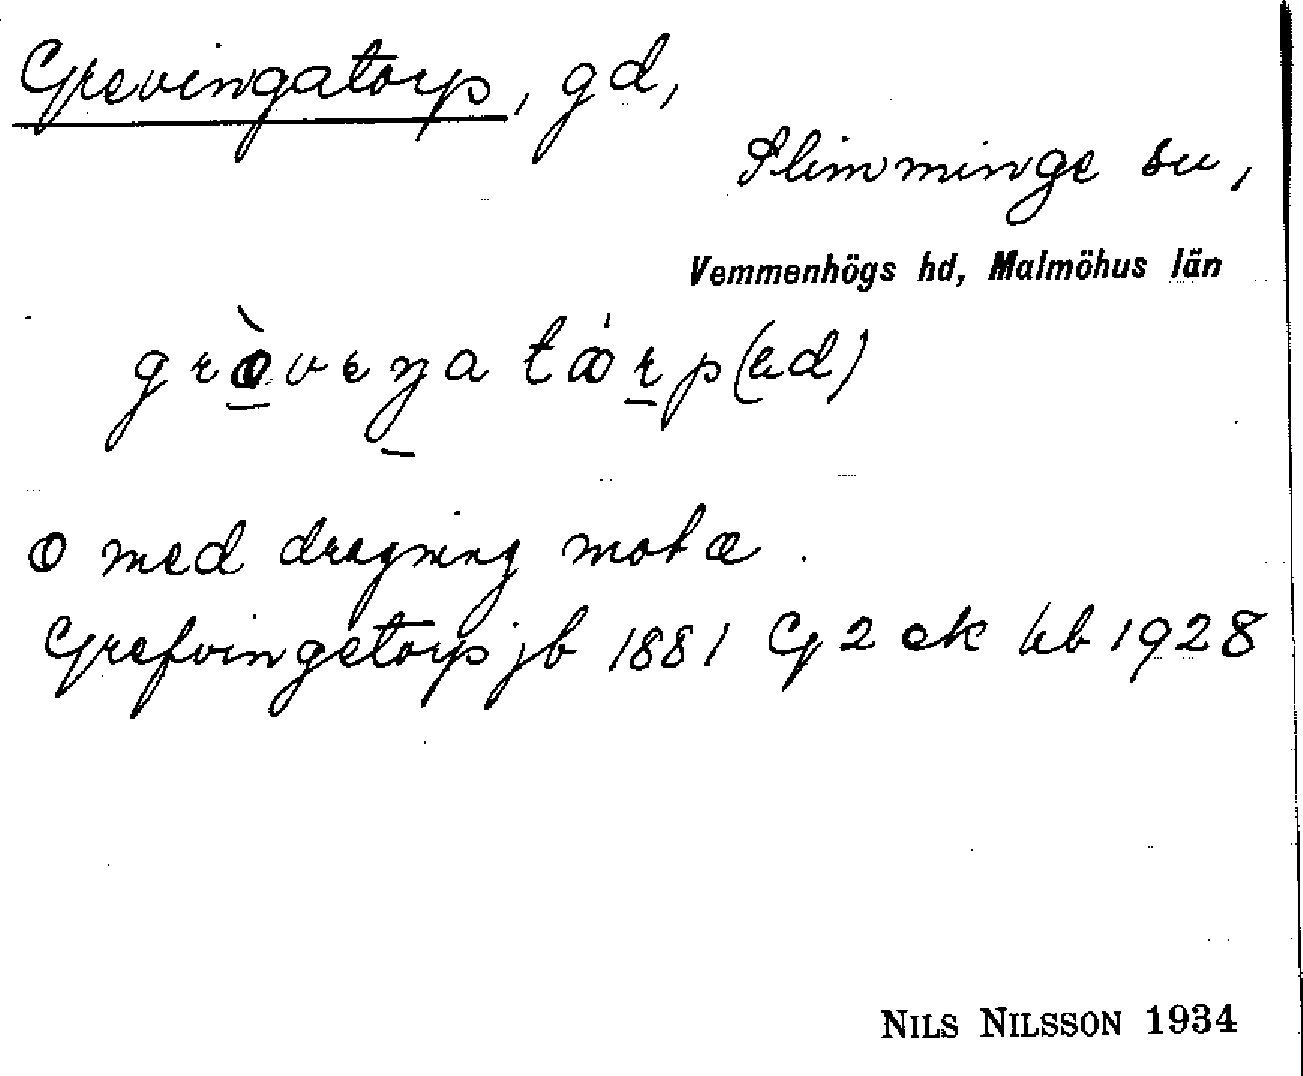 Grevingatorp, gd,
Slimminge sn,
Vemmenhögs hd, Malmöhus län
med dragning mot æ.
Grefvingetorp jb 1881 G 2 ek kb 1928
NILS NILSSON 1934